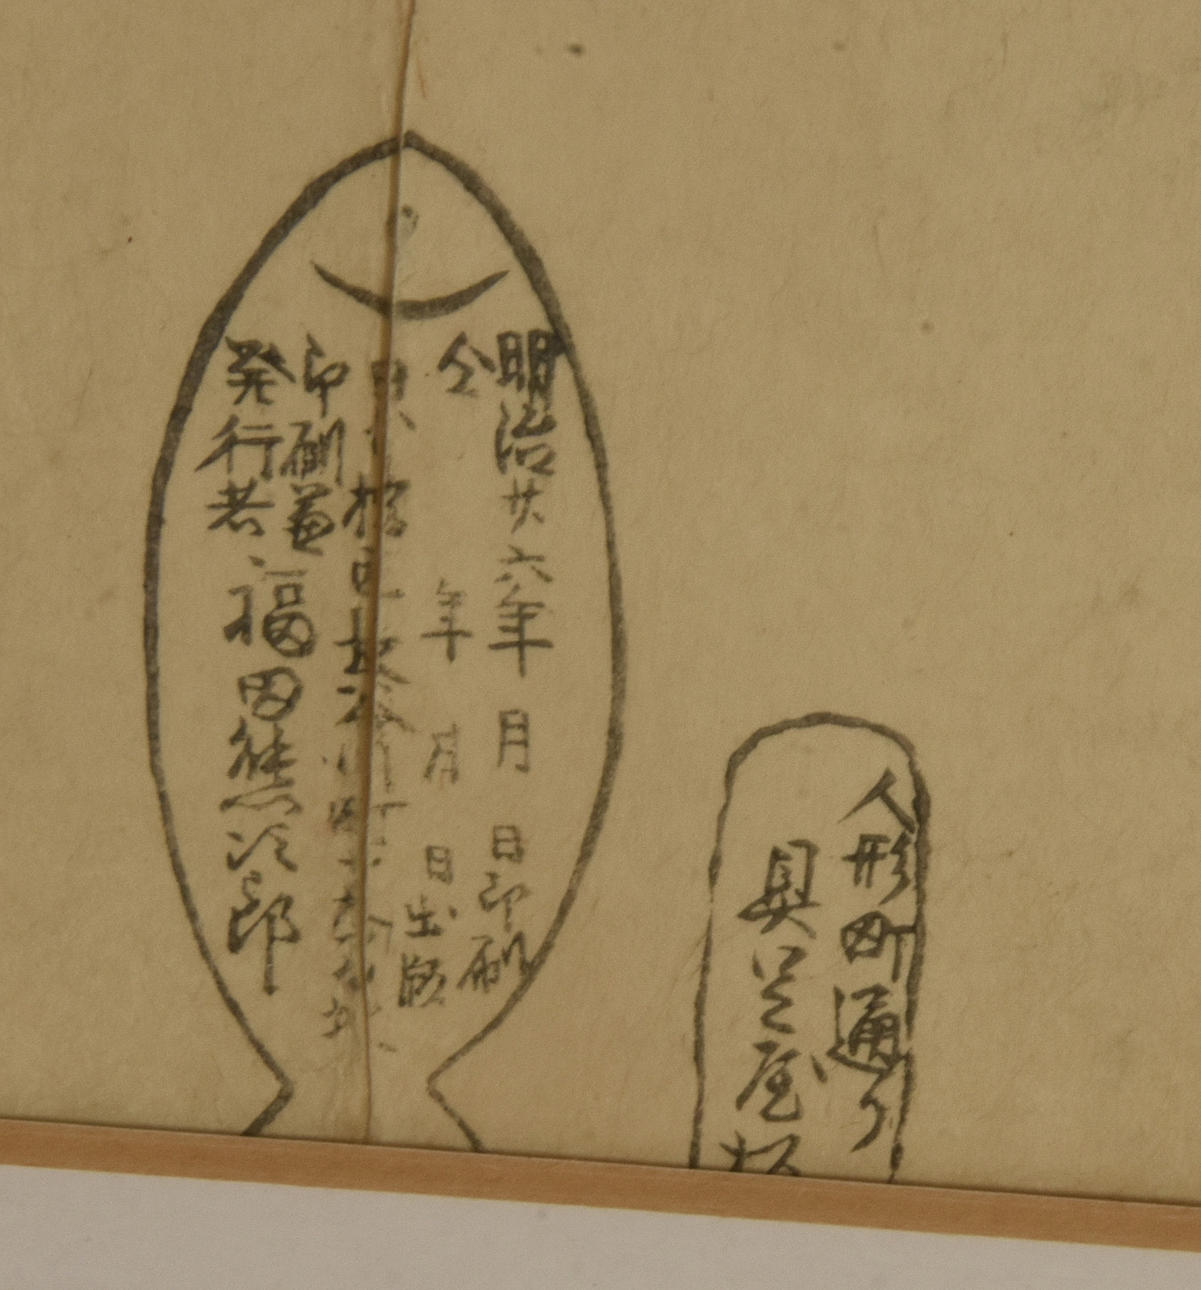 人形町通り
具足屋板
明治廿六年 月 日印刷
仝 年 月 日出版
日本橋区長谷川町
印刷兼
発行者 福田熊次郎